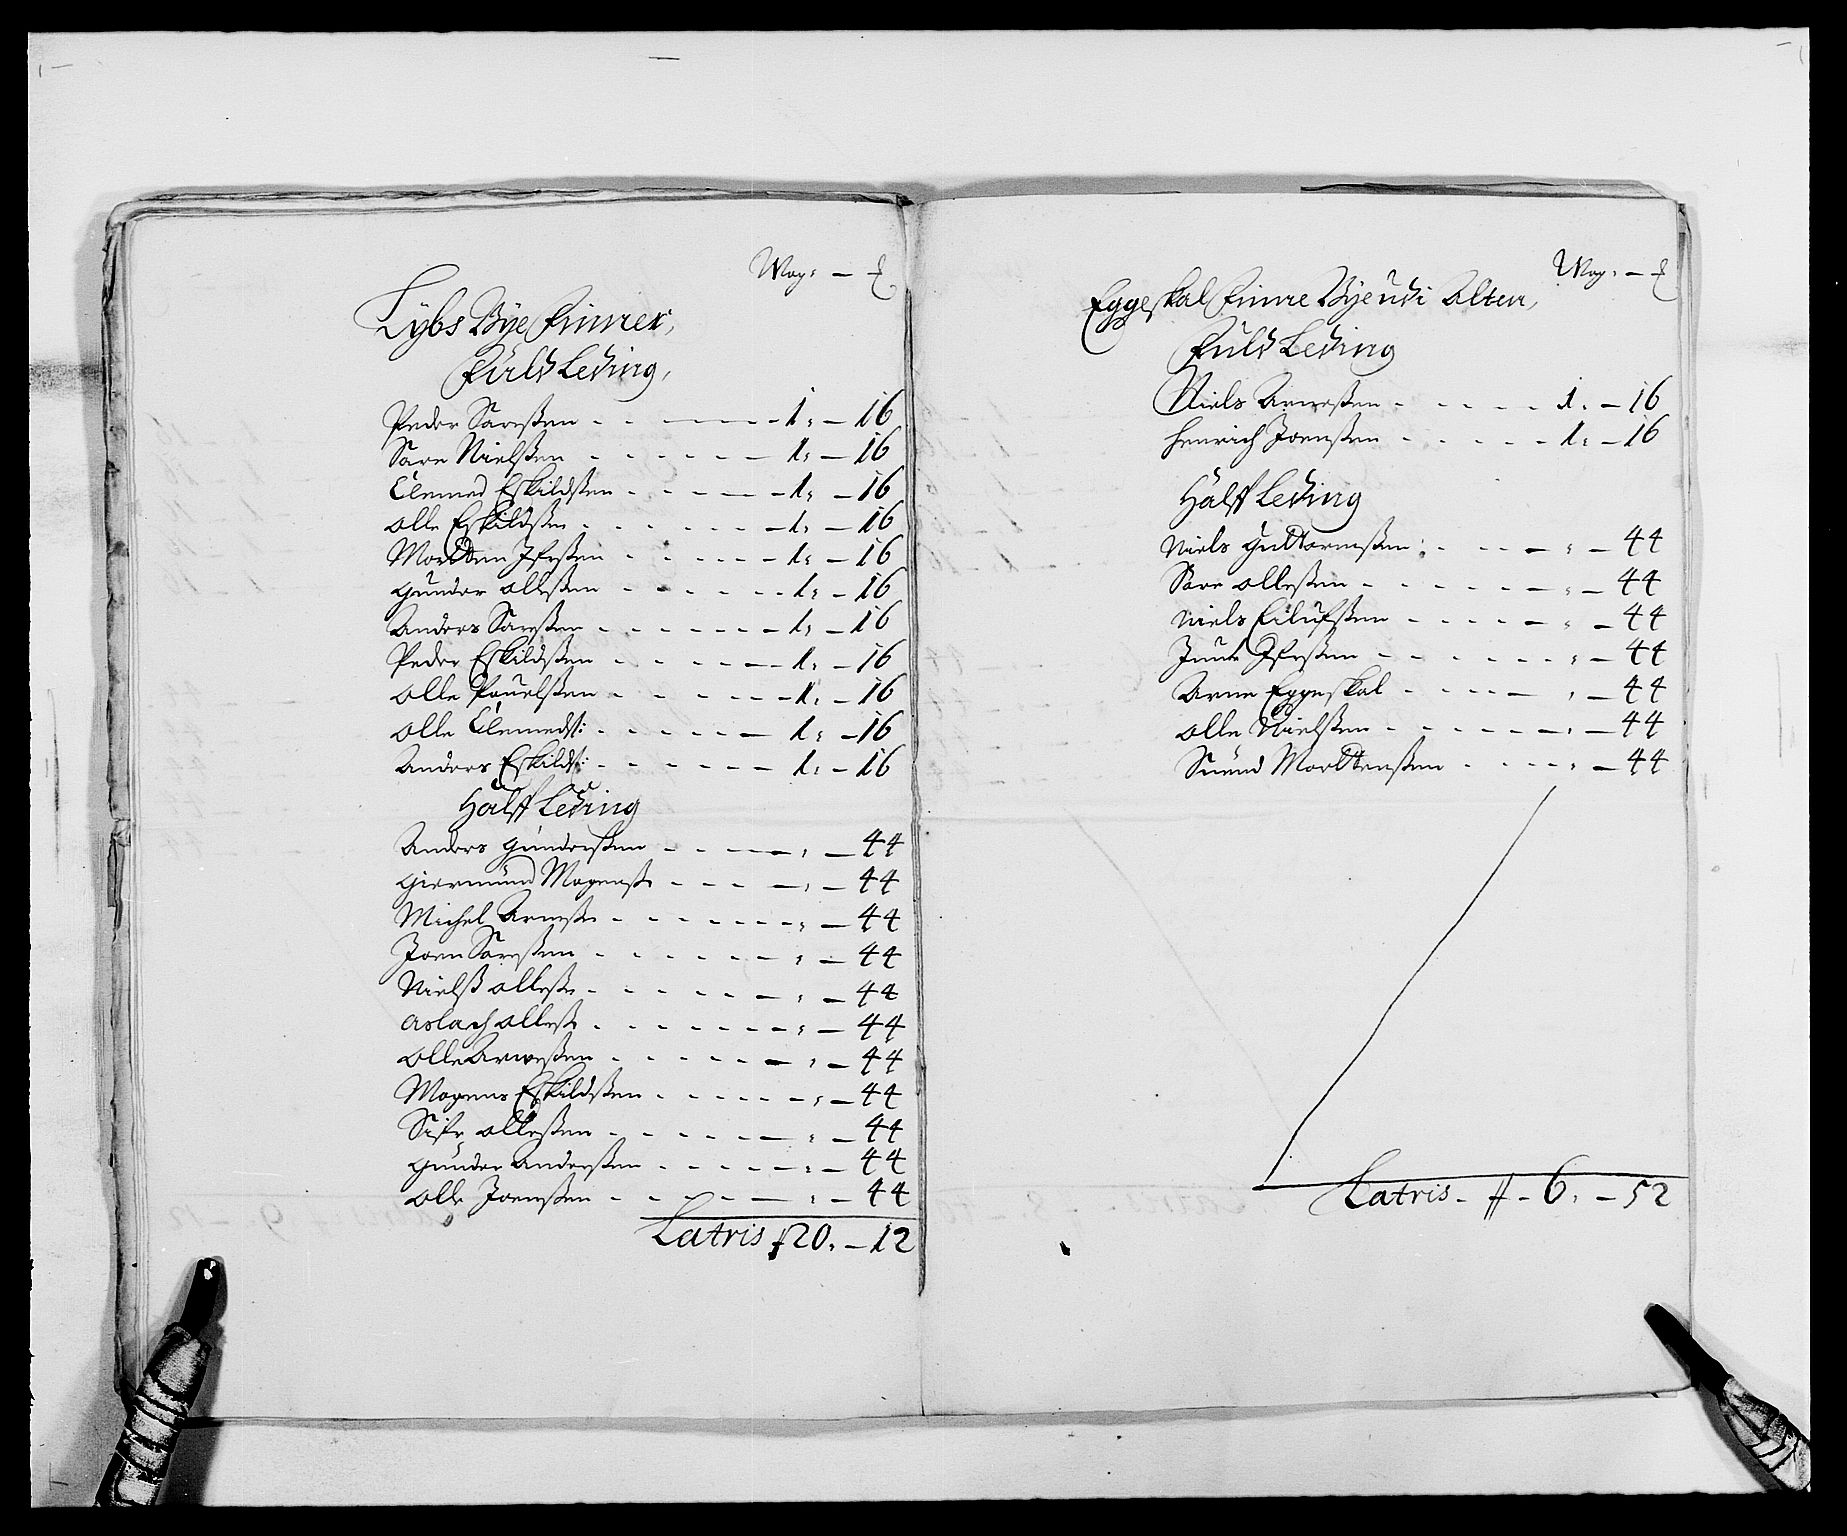 Wog: — ℔
Lybs Bye Finner,
Fuld Leding,
Peder Sareßen - - - 1: — 16
Sare Nielßen - - - 1: — 16
Clemed Eskildßen - - - 1: — 16
Olle Eskildßen - - - 1: — 16
Mortten Ifrßen - - - 1: — 16
Gunder Olleßen - - - 1: — 16
Anders Sareßen - - - 1: — 16
Peder Eskildßen - - - 1: — 16
Olle Pouelßen - - - 1: — 16
Olle Clemedß: - - - 1: — 16
Anders Eskildß: - - - 1: — 16
Halff Leding
Anders Gunderßen - - - : — 44
Giermund Mogenß - - - : — 44
Michel Arneß - - - : — 44
Joen Sareßen - - - : — 44
Nielß Olleß - - - : — 44
Aslach Olleß - - - : — 44
Olle Arweßen - - - : — 44
Mogens Eskildßen - - - : — 44
Sifr Olleßen - - - : — 44
Gunder Anderßen - - - : — 44
Olle Joenßen - - - : — 44
Latris 20: — 12
Wog: — ℔
Eggeskal Finne Bye udi Alten,
Fuld Leding
Niels Arweßen - - - 1: — 16
Henrich Joenßen - - - 1: — 16
Halff Leding
Niels Guttormßen - - - : — 44
Sare Olleßen - - - : — 44
Niels Eilufßen - - - : — 44
Junte Ifrßen - - - : — 44
Arne Eggeskal - - - : — 44
Olle Nielßen - - - : — 44
Suend Morttenßen - - - : — 44
Latris - 6: — 52